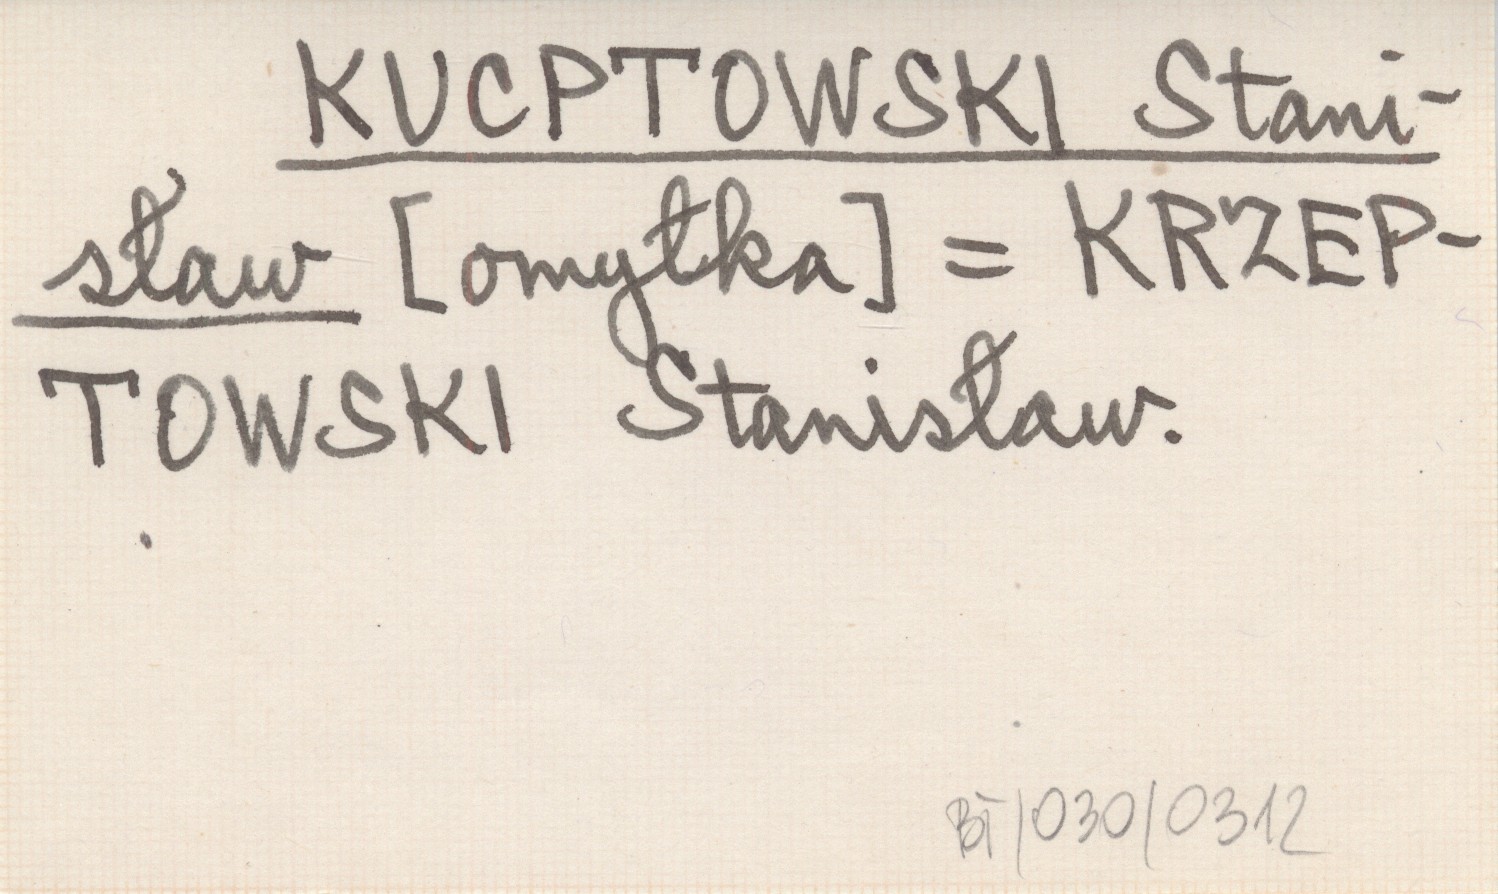 KUCPTOWSKI Stani-
sław [omyłka] = KRZEP-
TOWSKI Stanisław.
BT/030/0312